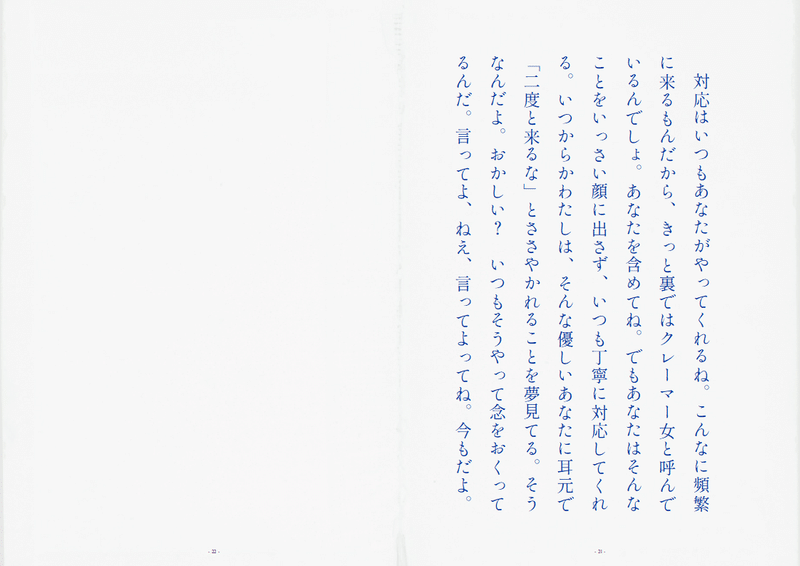 対応はいつもあなたがやってくれるね。こんなに頻繁
に来るもんだから、きっと裏ではクレーマー女と呼んで
いるんでしょ。あなたを含めてね。でもあなたはそんな
ことをいっさい顔に出さず、いつも丁寧に対応してくれ
る。いつからかわたしは、そんな優しいあなたに耳元で
「二度と来るな」とささやかれることを夢見てる。そう
なんだよ。おかしい？　いつもそうやって念をおくって
るんだ。言ってよ、ねえ、言ってよってね。今もだよ。
- 21 -
- 22 -